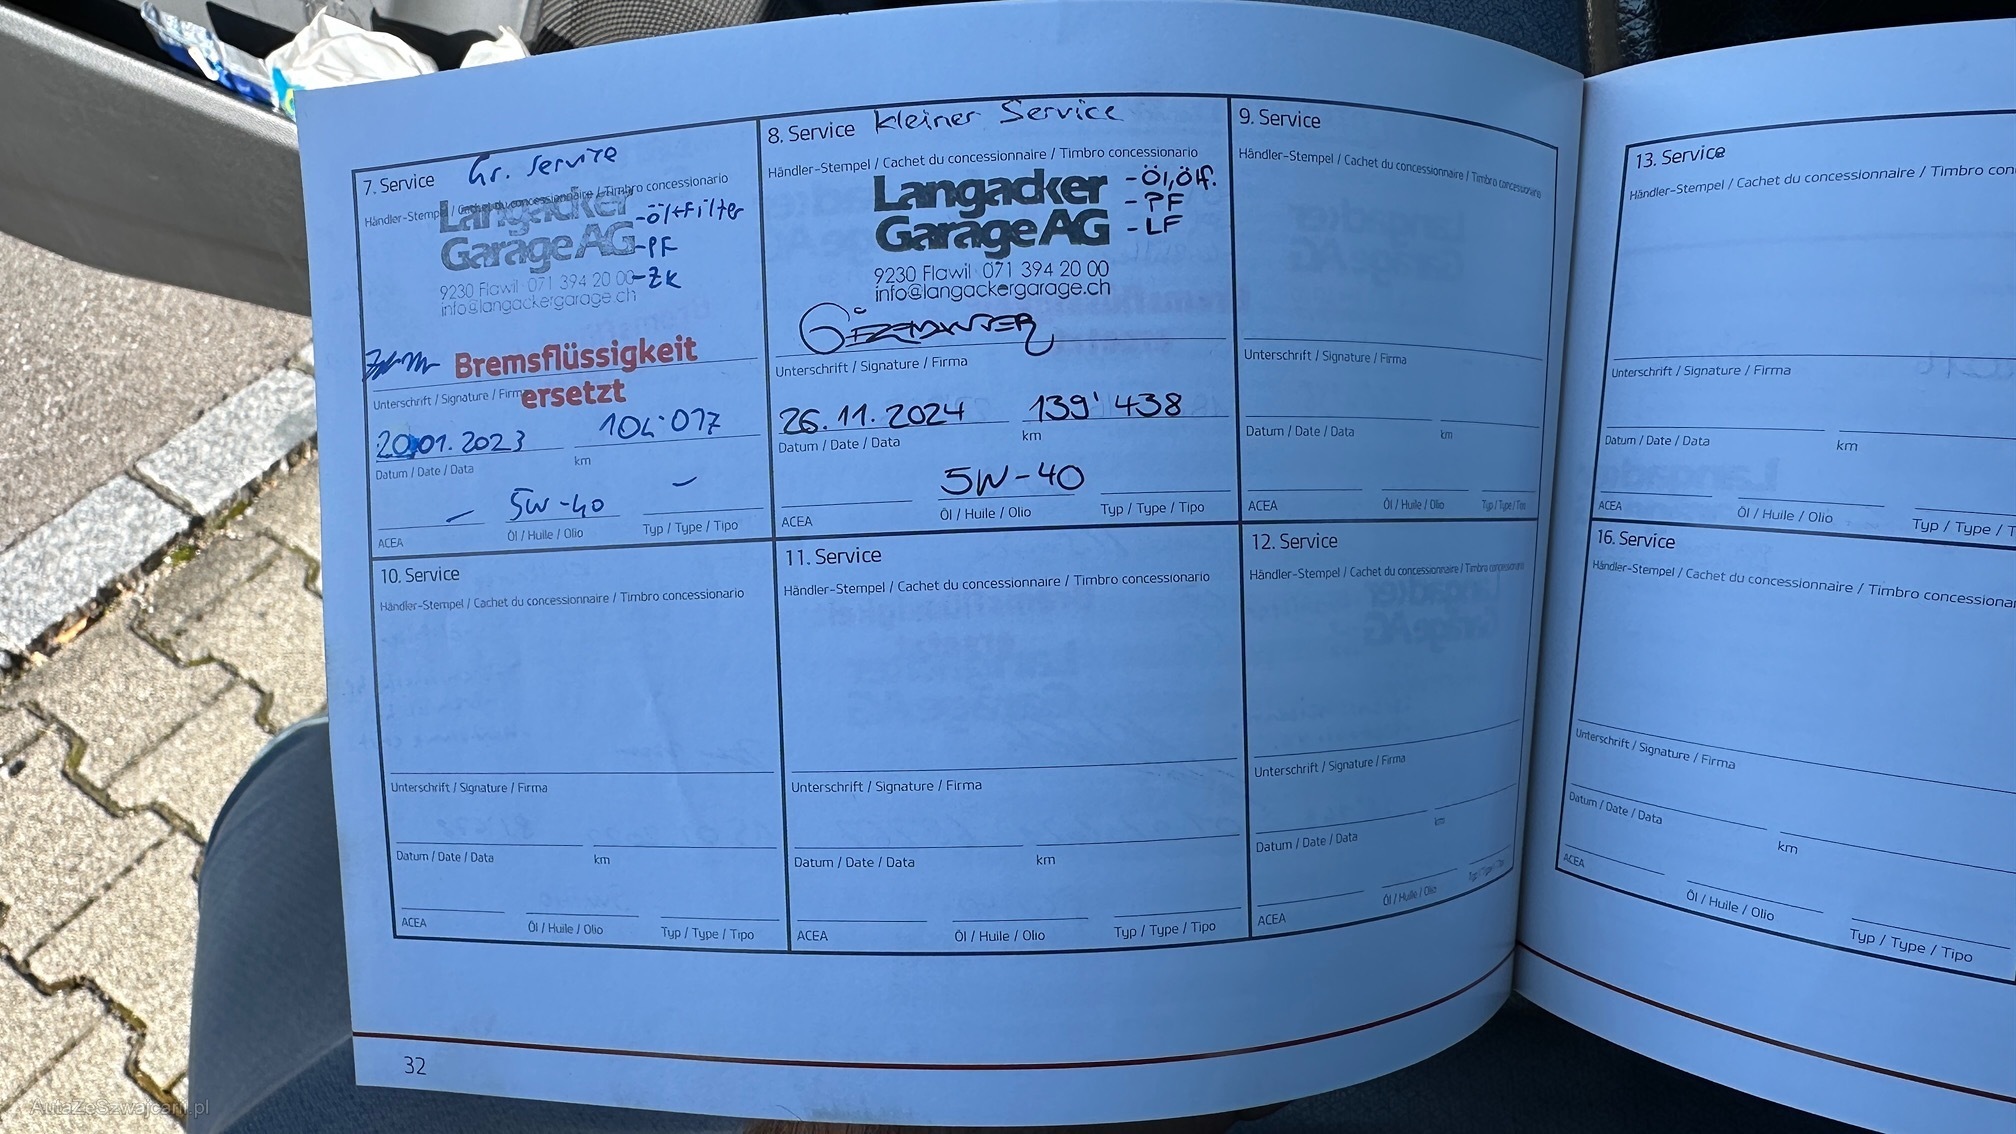 7. Service Gr. Service
Händler-Stempel / Cachet du concessionnaire / Timbro concessionario
Langacker
Garage AG
9230 Flawil 071 394 20 00
info@langackergarage.ch
- Öl+Filter
- PF
- ZK
Bremsflüssigkeit
ersetzt
Unterschrift / Signature / Firma
20.01.2023 104'017
Datum / Date / Data km
- 5W-40 -
ACEA Öl / Huile / Olio Typ / Type / Tipo
8. Service kleiner Service
Händler-Stempel / Cachet du concessionnaire / Timbro concessionario
Langacker
Garage AG
9230 Flawil 071 394 20 00
info@langackergarage.ch
- Öl, Ölf.
- PF
- LF
Unterschrift / Signature / Firma
26.11.2024 139'438
Datum / Date / Data km
5W-40
ACEA Öl / Huile / Olio Typ / Type / Tipo
9. Service
Händler-Stempel / Cachet du concessionnaire / Timbro concessionario
Unterschrift / Signature / Firma
Datum / Date / Data km
ACEA Öl / Huile / Olio Typ / Type / Tipo
10. Service
Händler-Stempel / Cachet du concessionnaire / Timbro concessionario
Unterschrift / Signature / Firma
Datum / Date / Data km
ACEA Öl / Huile / Olio Typ / Type / Tipo
11. Service
Händler-Stempel / Cachet du concessionnaire / Timbro concessionario
Unterschrift / Signature / Firma
Datum / Date / Data km
ACEA Öl / Huile / Olio Typ / Type / Tipo
12. Service
Händler-Stempel / Cachet du concessionnaire / Timbro concessionario
Unterschrift / Signature / Firma
Datum / Date / Data km
ACEA Öl / Huile / Olio Typ / Type / Tipo
32
13. Service
Händler-Stempel / Cachet du concessionnaire / Timbro con
Unterschrift / Signature / Firma
Datum / Date / Data km
ACEA Öl / Huile / Olio Typ / Type / T
16. Service
Händler-Stempel / Cachet du concessionnaire / Timbro concessiona
Unterschrift / Signature / Firma
Datum / Date / Data km
ACEA Öl / Huile / Olio Typ / Type / Tipo
AutaZeSzwajcarii.pl